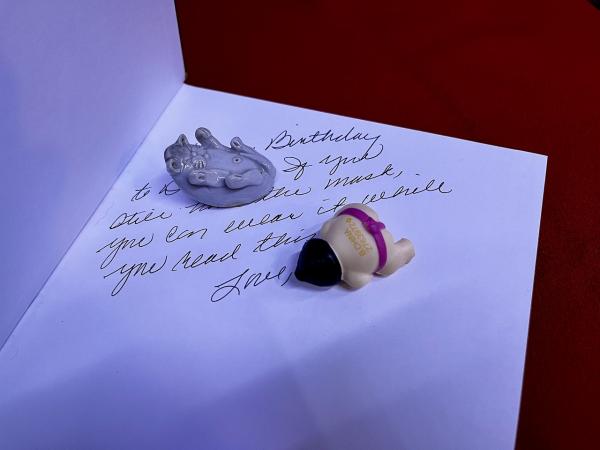 Birthday
to If you
still the mask,
you can wear it while
you read this
Love,
CHINA